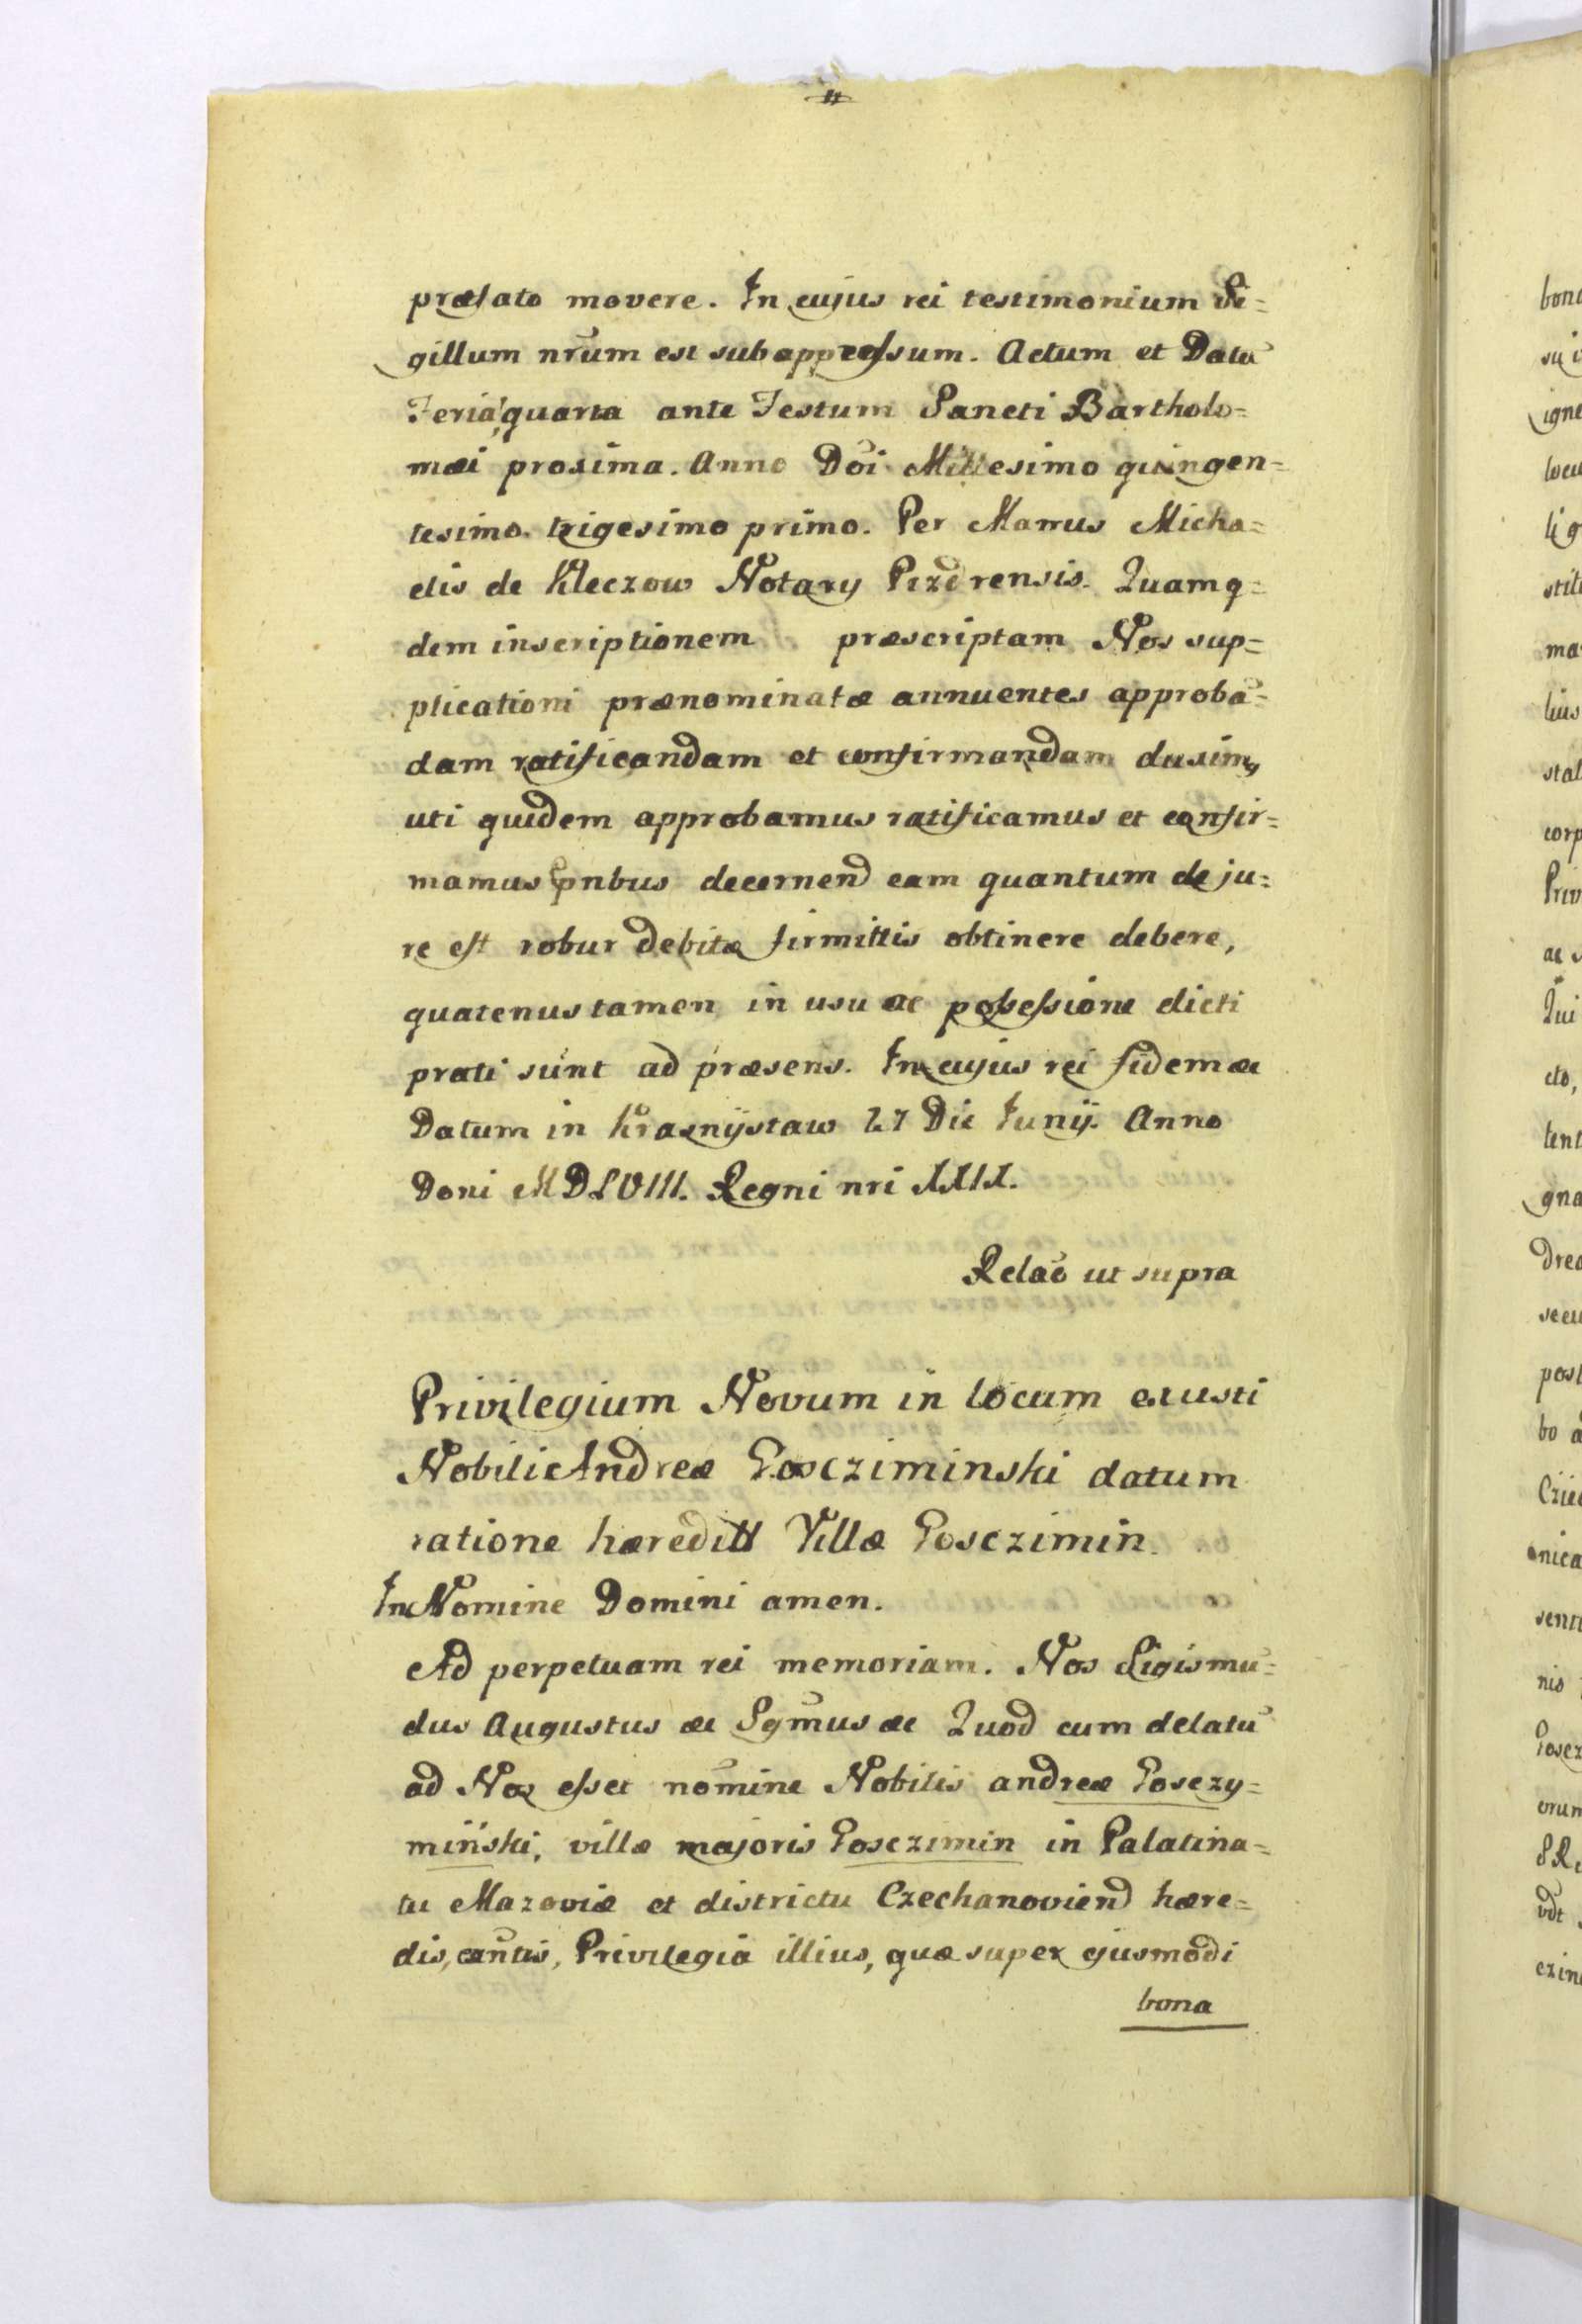 præfato movere. In cujus rei testimonium Si=
gillum nrūm est subappressum. Actum et Datū
Feria quarta ante Festum Sancti Bartholo=
mæi proxima. Anno Dōi Millesimo quingen=
tesimo trigesimo primo. Per Manus Micha=
elis de Kleczow Notary Pizdrensis. Quamq=
dem inscriptionem præscriptam Nos sup=
plicationi prænominatæ annuentes approbā=
dam ratificandam et confirmandam duxim9
uti quidem approbamus ratificamus et confir=
mamus pnbus decernend eam quantum de ju=
re est robur debitæ firmittis obtinere debere,
quatenus tamen in usu ac possessione dicti
prati sunt ad præsens. In cujus rei fidem &c
Datum in Krasnÿstaw 27 Die Junÿ. Anno
Doni MDLVIII. Regni nri XXIX.
Relaō ut supra
Privilegium Novum in locum exusti
Nobili Andreæ Gosciminski datum
ratione hæreditt Villæ Gosczimin.
In Nomine Domini amen.
Ad perpetuam rei memoriam. Nos Sigismū=
dus Augustus &c Sgm̄us &c Quod cum delatū
ad Nos esset nomine Nobilis andreæ Gosczy=
miński, villæ majoris Gosczimin in Palatina=
tu Mazoviæ et districtu Czechanoviend hære=
dis, Privilegia illius, quæ super ejusmodi
bona
bona